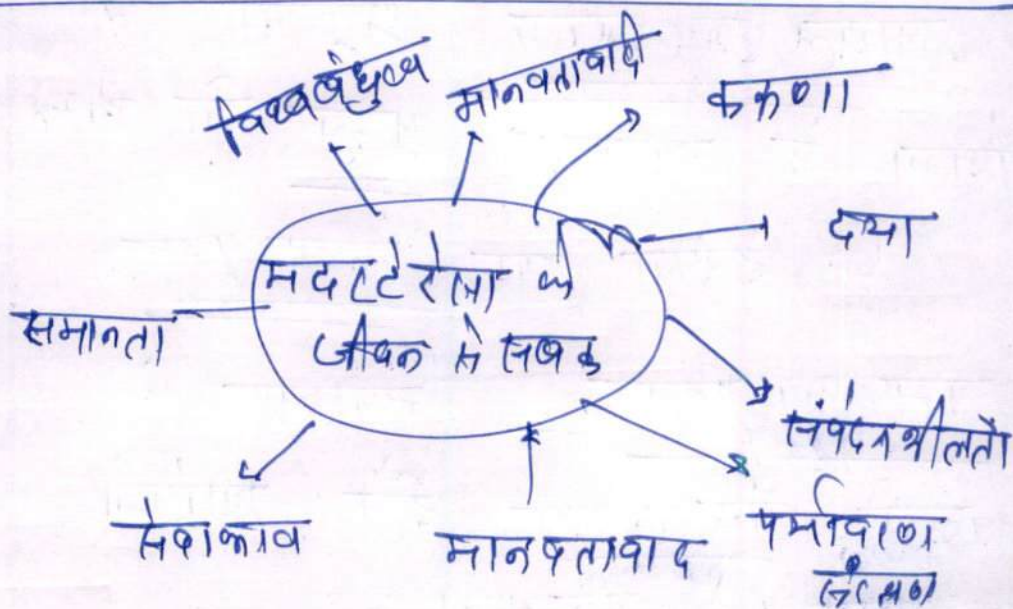 विश्वबंधुत्व
मानवतावादी
करुणा
दया
मदर टेरेसा के
जीवन से सबक
समानता
संवेदनशीलता
सेवाभाव
मानवतावाद
पर्यावरण
संरक्षण